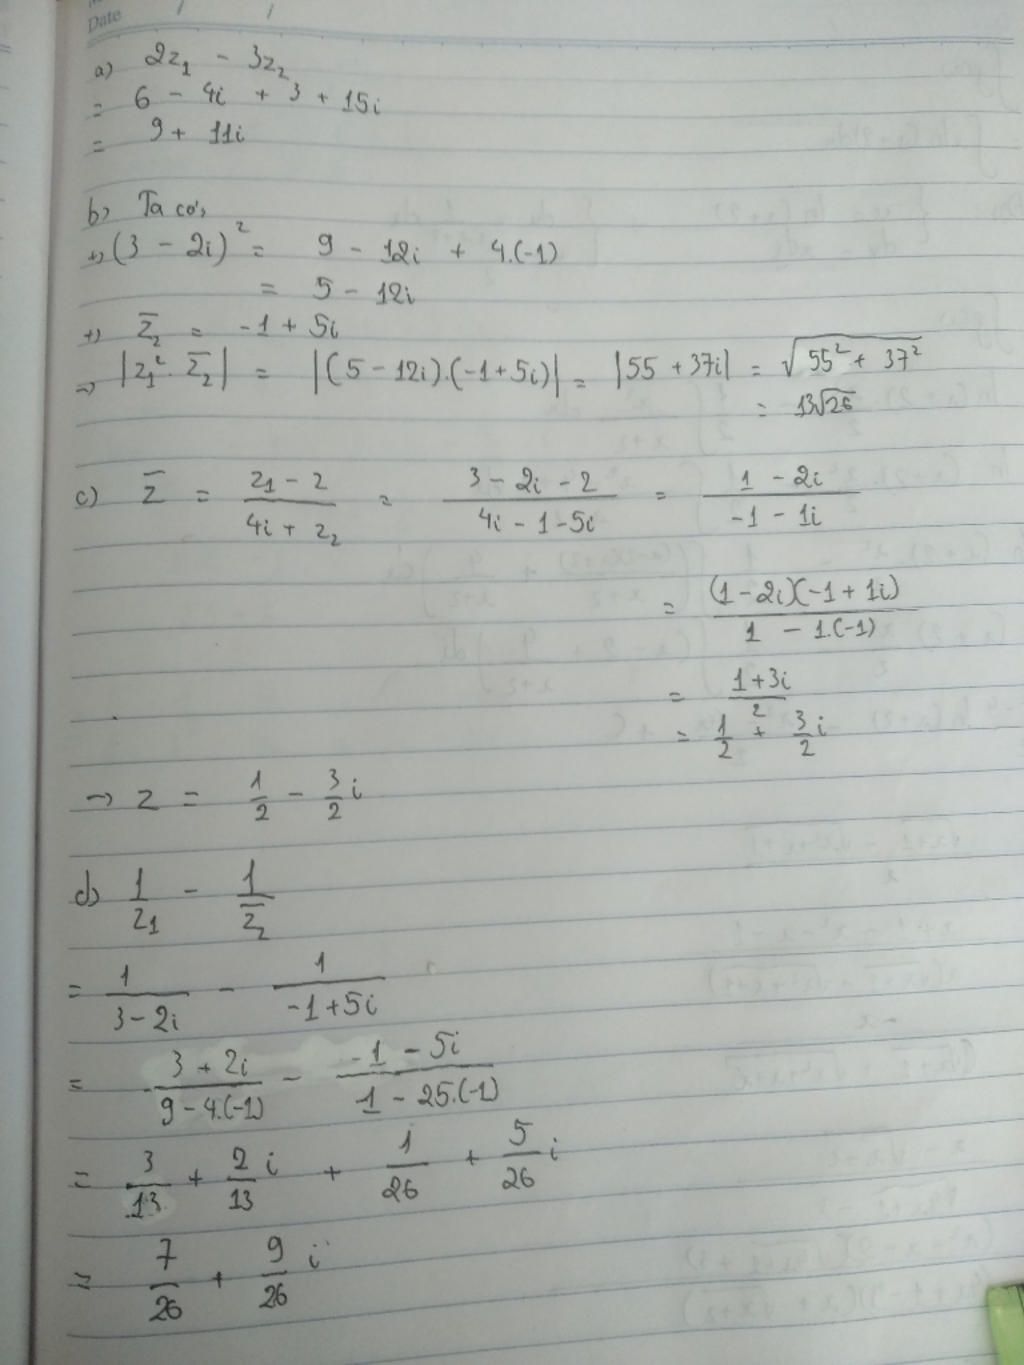 Date / /
a) 2z₁ - 3z₂
= 6 - 4i + 3 + 15i
= 9 + 11i
b) Ta có,
+) (3 - 2i)² = 9 - 12i + 4.(-1)
= 5 - 12i
+) z̅₂ = -1 + 5i
→ |z₁² . z̅₂| = |(5 - 12i).(-1+5i)| = |55 + 37i| = √(55² + 37²)
= 13√26
c) z̅ = (z₁ - 2)/(4i + z₂) = (3 - 2i - 2)/(4i - 1 - 5i) = (1 - 2i)/(-1 - 1i)
= (1 - 2i)(-1 + 1i)/(1 - 1.(-1))
= (1+3i)/2
= 1/2 + 3/2 i
→ z = 1/2 - 3/2 i
d) 1/z₁ - 1/z̅₂
= 1/(3 - 2i) - 1/(-1+5i)
= (3 + 2i)/(9 - 4.(-1)) - (-1 - 5i)/(1 - 25.(-1))
= 3/13 + 2/13 i + 1/26 + 5/26 i
= 7/26 + 9/26 i